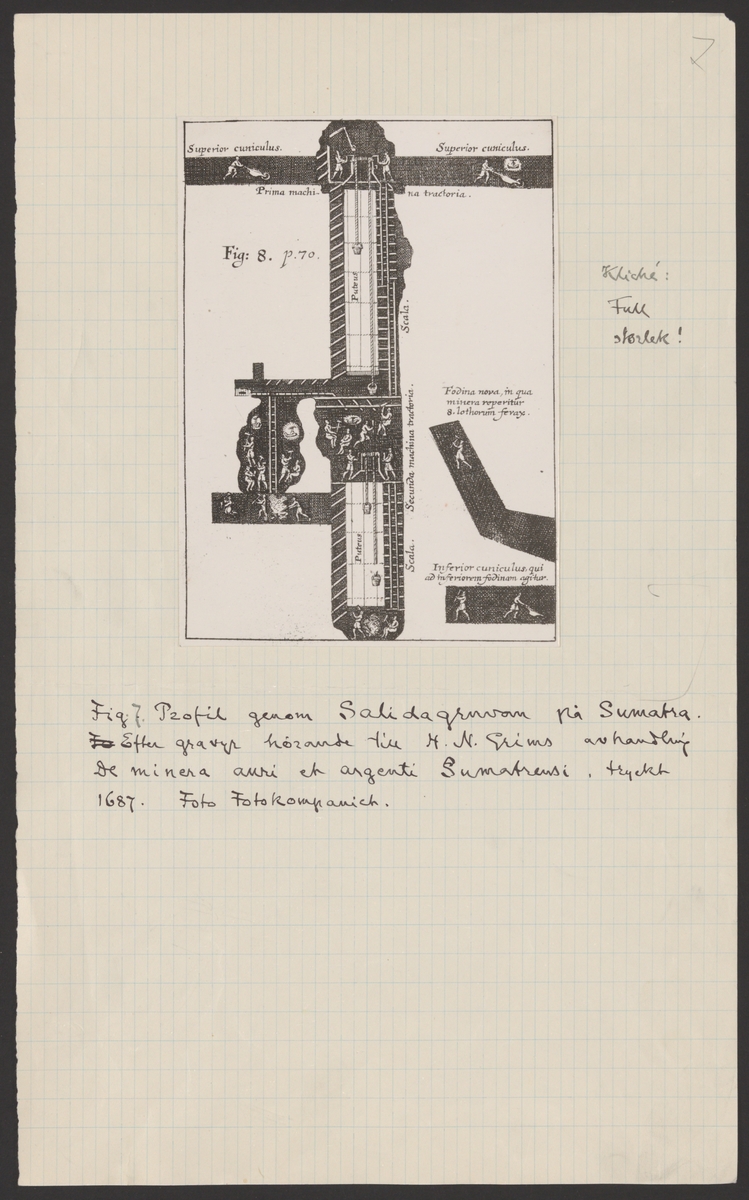 7
Superior cuniculus.
Superior cuniculus.
Prima machi-
na tractoria.
Fig: 8. p.70.
Puteus
Scala.
Kliché:
Full
storlek!
Fodina nova, in qua
minera reperitur
8. lothorum ferax.
Secunda machina tractoria.
Puteus
Scala.
Inferior cuniculus, qui
ad inferiorem fodinam agitur.
Fig 7. Profil genom Salidagruvan på Sumatra.
Efter gravyr hörande till H. N. Grims avhandling
De minera auri et argenti Sumatrensi, tryckt
1687. Foto Fotokompaniet.